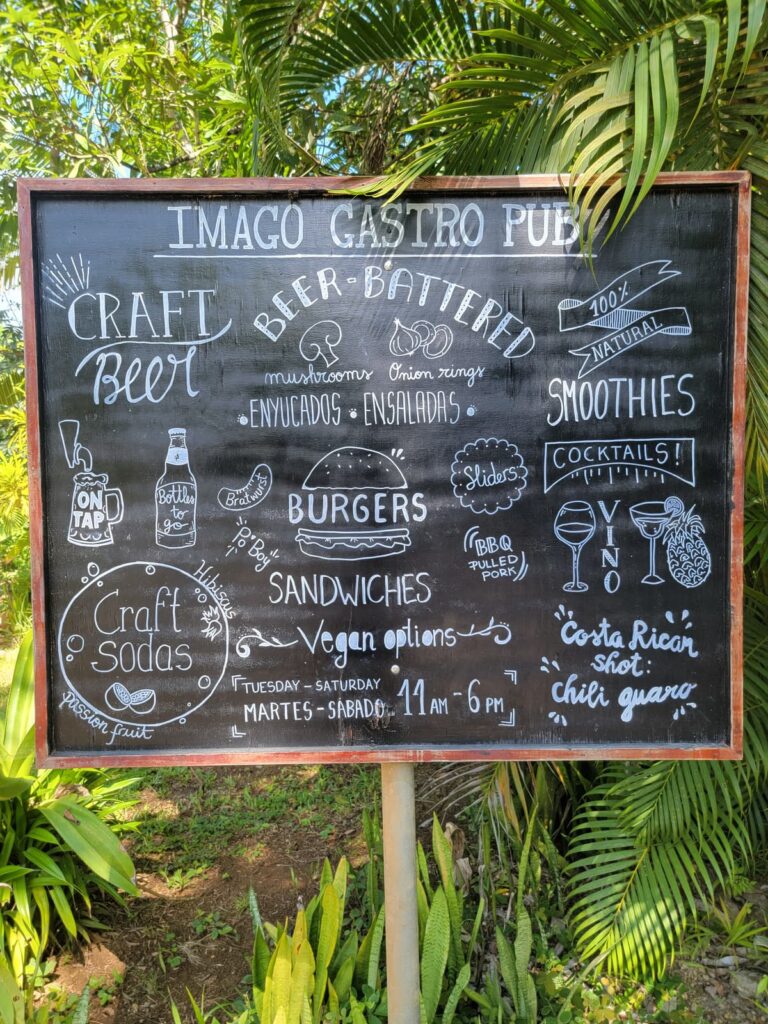 IMAGO GASTRO PUB
CRAFT
Beer
ON
TAP
Bottles
to
go
Craft
Sodas
Hibiscus
passion fruit
BEER-BATTERED
mushrooms
Onion rings
ENYUCADOS • ENSALADAS •
Bratwurst
Po'Boy
BURGERS
Sliders
BBQ
PULLED
PORK
SANDWICHES
Vegan options
TUESDAY - SATURDAY
MARTES - SÁBADO
11 AM - 6 PM
100%
NATURAL
SMOOTHIES
COCKTAILS!
VINO
Costa Rican
shot:
chili guaro